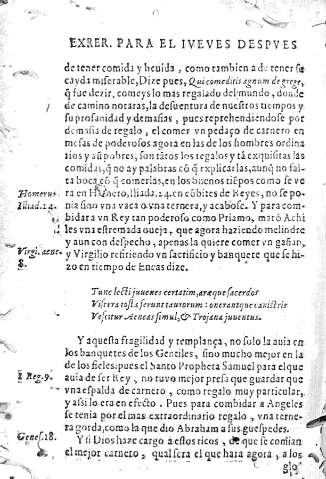 EXRER. PARA EL IVEVES DESPVES
de tener comida y beuida, como tambien a de tener su
cayda miserable, Dize pues, Qui comeditis agnum de grege,
q̃ fue dezir, comeys lo mas regalado del mundo, donde
de camino notaras, la desuentura de nuestros tiempos y
su profanidad y demasias, pues reprehendiendose por
demasia de regalo, el comer vn pedaço de carnero en
mesas de poderosos agora en las de hombres ordina
rios y aũ pobres, son tãtos los regalos y tã exquisitas las
comidas, q̃ no ay palabras cõ q̃ explicarlas, aunq̃ no fal-
ta boca cõ q̃ comerlas, en los buenos tiẽpos como se ve
Homerus ra en Homero, Iliada. 24. en cõbites de Reyes, no se po-
Iliad. 24. nia sino vna vaca o vna ternera, y acabose. Y para com-
bidar a vn Rey tan poderoso como Priamo, matò Achi
les vna estremada oueja, que agora haziendo melindre
Virgi. aene. y aun con despecho, apenas la quiere comer vn gañan,
8. y Virgilio refiriendo vn sacrificio y banquete que se hi-
zo en tiempo de Eneas dize.
Tune lecti juuenes certatim, aræque sacerdos
Viscera tosta ferunt taurorum: onerantque canistris
Vescitur Aeneas simul, & Trojana juuentus.
Y aquesta fragilidad y templança, no solo la auia en
los banquetes de los Gentiles, sino mucho mejor en la
de los fieles: pues el Santo Propheta Samuel para el que
1 Reg. 9. auia de ser Rey, no tuvo mejor presa que guardar que
vna espalda de carnero, como regalo muy particular,
y assi lo era en efecto. Pues para combidar a Angeles
se tenia por el mas extraordinario regalo, vna terne-
Genes. 18. ra gorda, como la que dio Abraham a sus guespedes.
Y si Dios haze cargo a estos ricos, de que se comian
el mejor carnero, qual sera el que hara agora, a los
glo